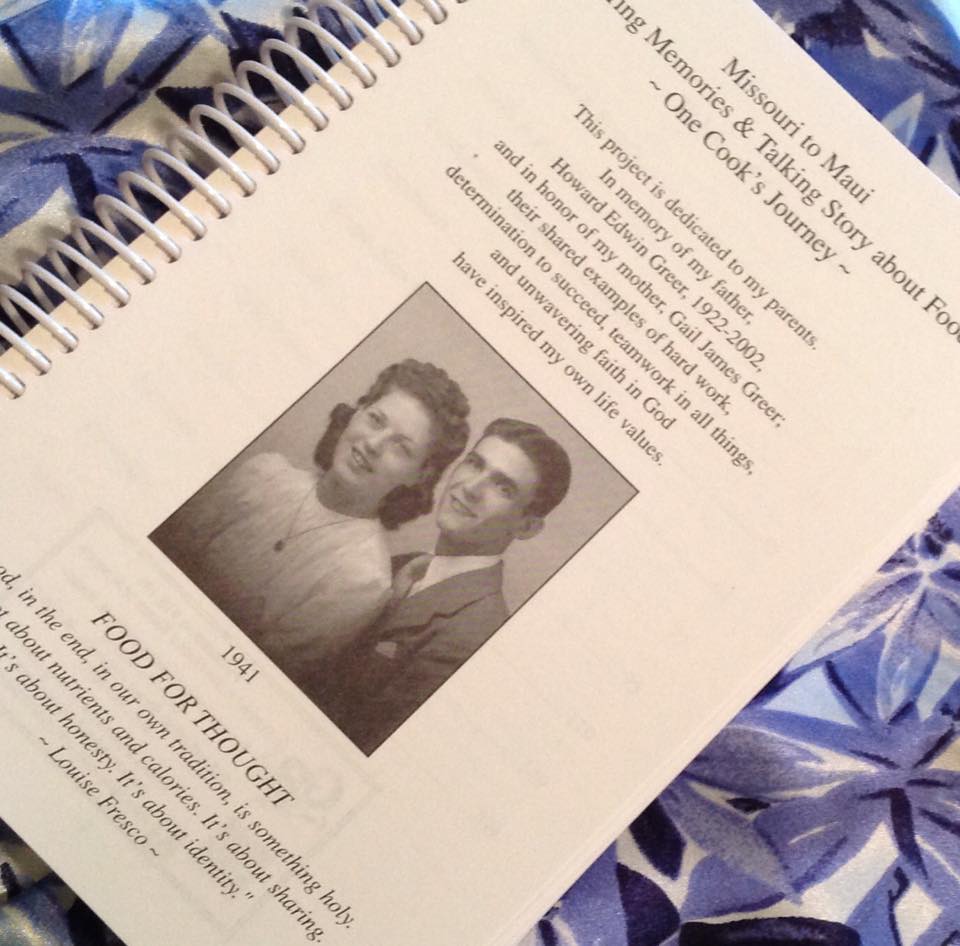 Missouri to Maui
Memories & Talking Story about Food
~ One Cook's Journey ~
This project is dedicated to my parents.
In memory of my father,
Howard Edwin Greer, 1922-2002,
and in honor of my mother, Gail James Greer;
their shared examples of hard work,
determination to succeed, teamwork in all things,
and unwavering faith in God
have inspired my own life values.
1941
FOOD FOR THOUGHT
in the end, in our own tradition, is something holy.
about nutrients and calories. It's about sharing.
It's about honesty. It's about identity."
~ Louise Fresco ~